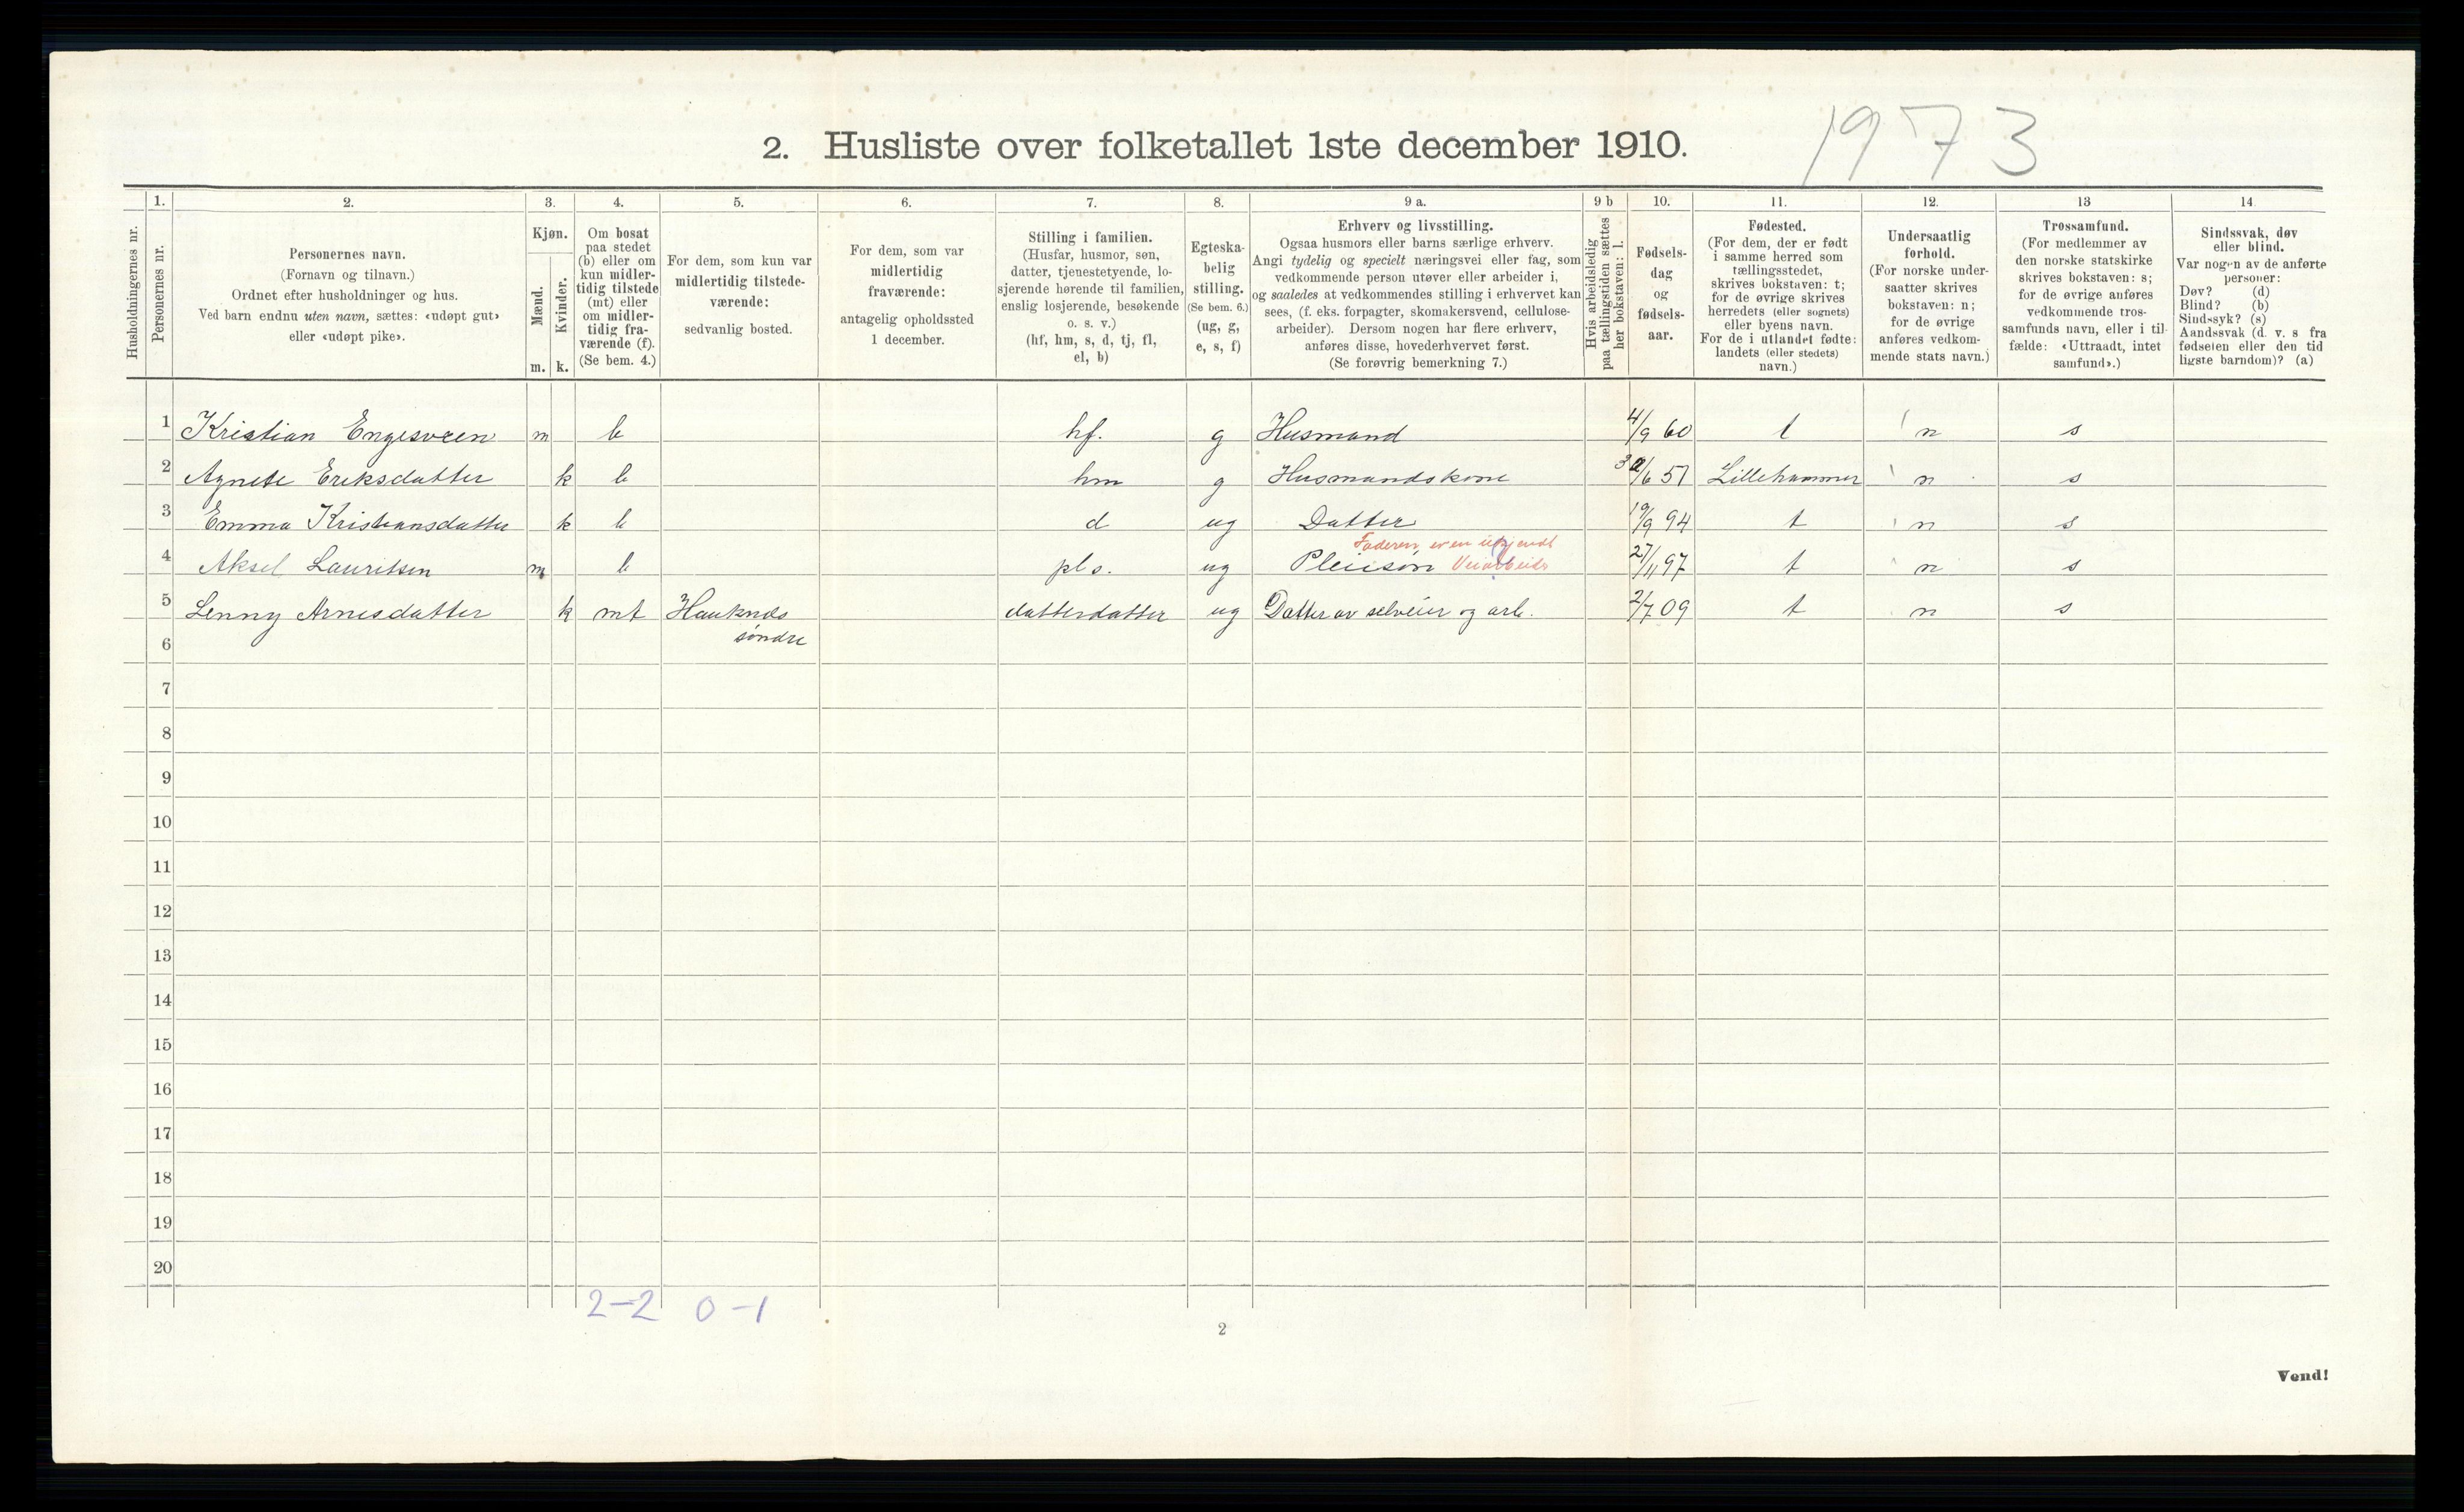 1973
2. Husliste over folketallet 1ste december 1910.
1. 2. 3. 4. 5. 6. 7. 8. 9 a. 9 b 10. 11. 12. 13 14.
Husholdningernes nr.
Personernes nr.
Personernes navn.
(Fornavn og tilnavn.)
Ordnet efter husholdninger og hus.
Ved barn endnu uten navn, sættes: «udøpt gut»
eller «udøpt pike».
Kjøn.
Mænd.
Kvinder.
m. k.
Om bosat
paa stedet
(b) eller om
kun midler-
tidig tilstede
(mt) eller
om midler-
tidig fra-
værende (f).
(Se bem. 4.)
For dem, som kun var
midlertidig tilstede-
værende:
sedvanlig bosted.
For dem, som var
midlertidig
fraværende:
antagelig opholdssted
1 december.
Stilling i familien.
(Husfar, husmor, søn,
datter, tjenestetyende, lo-
sjerende hørende til familien,
enslig losjerende, besøkende
o. s. v.)
(hf, hm, s, d, tj, fl,
el, b)
Egteska-
belig
stilling.
(Se bem. 6.)
(ug, g,
e, s, f)
Erhverv og livsstilling.
Ogsaa husmors eller barns særlige erhverv.
Angi tydelig og specielt næringsvei eller fag, som
vedkommende person utøver eller arbeider i,
og saaledes at vedkommendes stilling i erhvervet kan
sees, (f. eks. forpagter, skomakersvend, cellulose-
arbeider). Dersom nogen har flere erhverv,
anføres disse, hovederhvervet først.
(Se forøvrig bemerkning 7.)
Hvis arbeidsledig
paa tællingstiden sættes
her bokstaven: l.
Fødsels-
dag
og
fødsels-
aar.
Fødested.
(For dem, der er født
i samme herred som
tællingsstedet,
skrives bokstaven: t;
for de øvrige skrives
herredets (eller sognets)
eller byens navn.
For de i utlandet fødte:
landets (eller stedets)
navn.)
Undersaatlig
forhold.
(For norske under-
saatter skrives
bokstaven: n;
for de øvrige
anføres vedkom-
mende stats navn.)
Trossamfund.
(For medlemmer av
den norske statskirke
skrives bokstaven: s;
for de øvrige anføres
vedkommende tros-
samfunds navn, eller i til-
fælde: «Uttraadt, intet
samfund».)
Sindssvak, døv
eller blind.
Var nogen av de anførte
personer:
Døv? (d)
Blind? (b)
Sindssyk? (s)
Aandssvak (d. v. s. fra
fødselen eller den tid
ligste barndom)? (a)
1 Kristian Engesveen m b hf. g Husmand 4/9 60 t n s
2 Agnete Eriksdatter k b hm g Husmandskone 6 51 Lillehammer n s
3 Emma Kristiansdatter k b d ug Datter 19/9 94 t n s
Faderen er en ukjendt
4 Aksel Lauritsen m b pl s. ug Pleiesøn Veiarbeider 27/11 97 t n s
5 Lenny Arnesdatter k mt Hauknes datterdatter ug Datter av selveier og arb. 2/7 09 t n s
søndre
6
7
8
9
10
11
12
13
14
15
16
17
18
19
20
2-2 0-1
2
Vend!